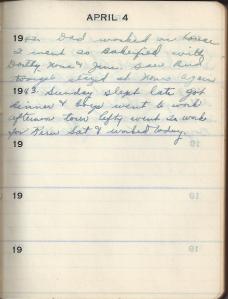 APRIL 4
1942. Dad worked on house
I went to Bakersfield with
Dorthy, Nona & June. Saw Bud
slept at Nona again
1943. Sunday slept late got
dinner & boys went to work
afternoon tour Lefty went to work
for Kern Sat & worked today.
19
19
19